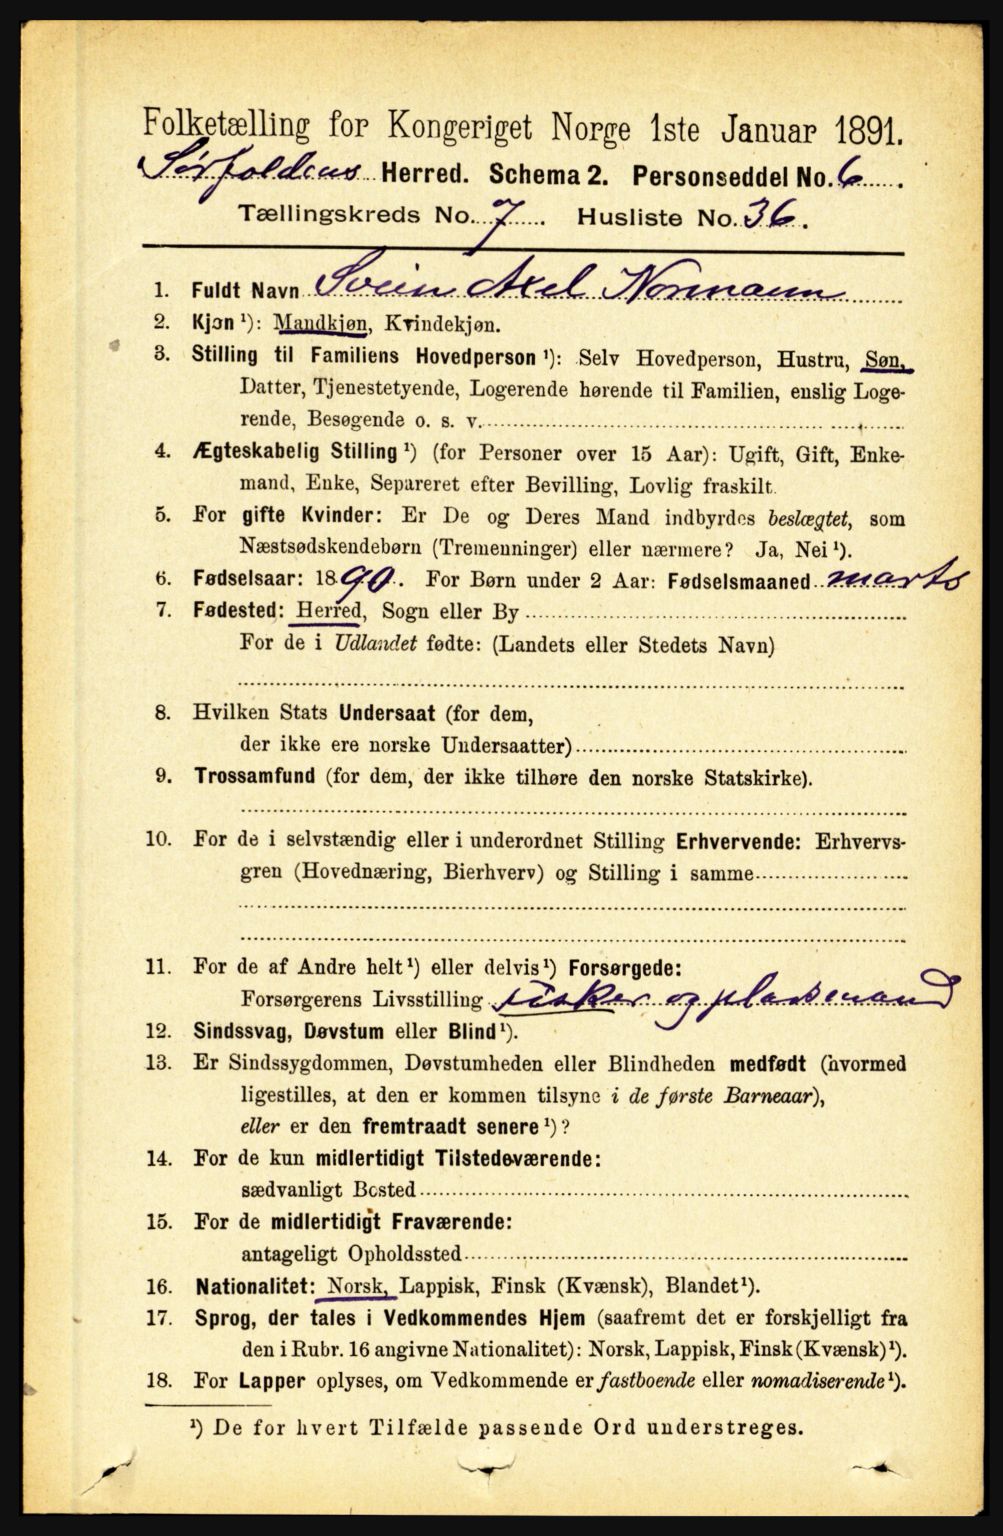 Folketælling for Kongeriget Norge 1ste Januar 1891.
Sørfoldens Herred. Schema 2. Personseddel No. 6.
Tællingskreds No. 7. Husliste No. 36.
1. Fuldt Navn Svein Axel Normann
2. Kjøn ¹): Mandkjøn, Kvindekjøn.
3. Stilling til Familiens Hovedperson ¹): Selv Hovedperson, Hustru, Søn,
Datter, Tjenestetyende, Logerende hørende til Familien, enslig Loge-
rende, Besøgende o. s. v.
4. Ægteskabelig Stilling ¹) (for Personer over 15 Aar): Ugift, Gift, Enke-
mand, Enke, Separeret efter Bevilling, Lovlig fraskilt.
5. For gifte Kvinder: Er De og Deres Mand indbyrdes beslægtet, som
Næstsødskendebørn (Tremenninger) eller nærmere? Ja, Nei ¹).
6. Fødselsaar: 1890. For Børn under 2 Aar: Fødselsmaaned marts
7. Fødested: Herred, Sogn eller By
For de i Udlandet fødte: (Landets eller Stedets Navn)
8. Hvilken Stats Undersaat (for dem,
der ikke ere norske Undersaatter)
9. Trossamfund (for dem, der ikke tilhøre den norske Statskirke).
10. For de i selvstændig eller i underordnet Stilling Erhvervende: Erhvervs-
gren (Hovednæring, Bierhverv) og Stilling i samme
11. For de af Andre helt ¹) eller delvis ¹) Forsørgede:
Forsørgerens Livsstilling Fisker og pladsmand
12. Sindssvag, Døvstum eller Blind ¹).
13. Er Sindssygdommen, Døvstumheden eller Blindheden medfødt (hvormed
ligestilles, at den er kommen tilsyne i de første Barneaar),
eller er den fremtraadt senere ¹)?
14. For de kun midlertidigt Tilstedeværende:
sædvanligt Bosted
15. For de midlertidigt Fraværende:
antageligt Opholdssted
16. Nationalitet: Norsk, Lappisk, Finsk (Kvænsk), Blandet ¹).
17. Sprog, der tales i Vedkommendes Hjem (saafremt det er forskjelligt fra
den i Rubr. 16 angivne Nationalitet): Norsk, Lappisk, Finsk (Kvænsk) ¹).
18. For Lapper oplyses, om Vedkommende er fastboende eller nomadiserende ¹).
¹) De for hvert Tilfælde passende Ord understreges.